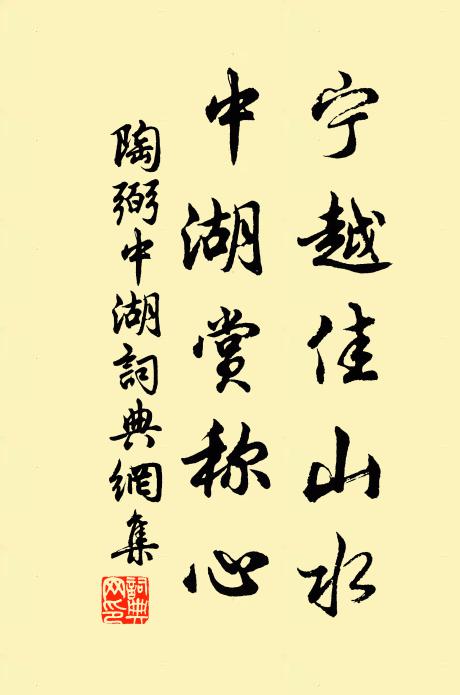 宁越佳山水
中湖赏称心
陶弼中湖詞典網集
詞典网印